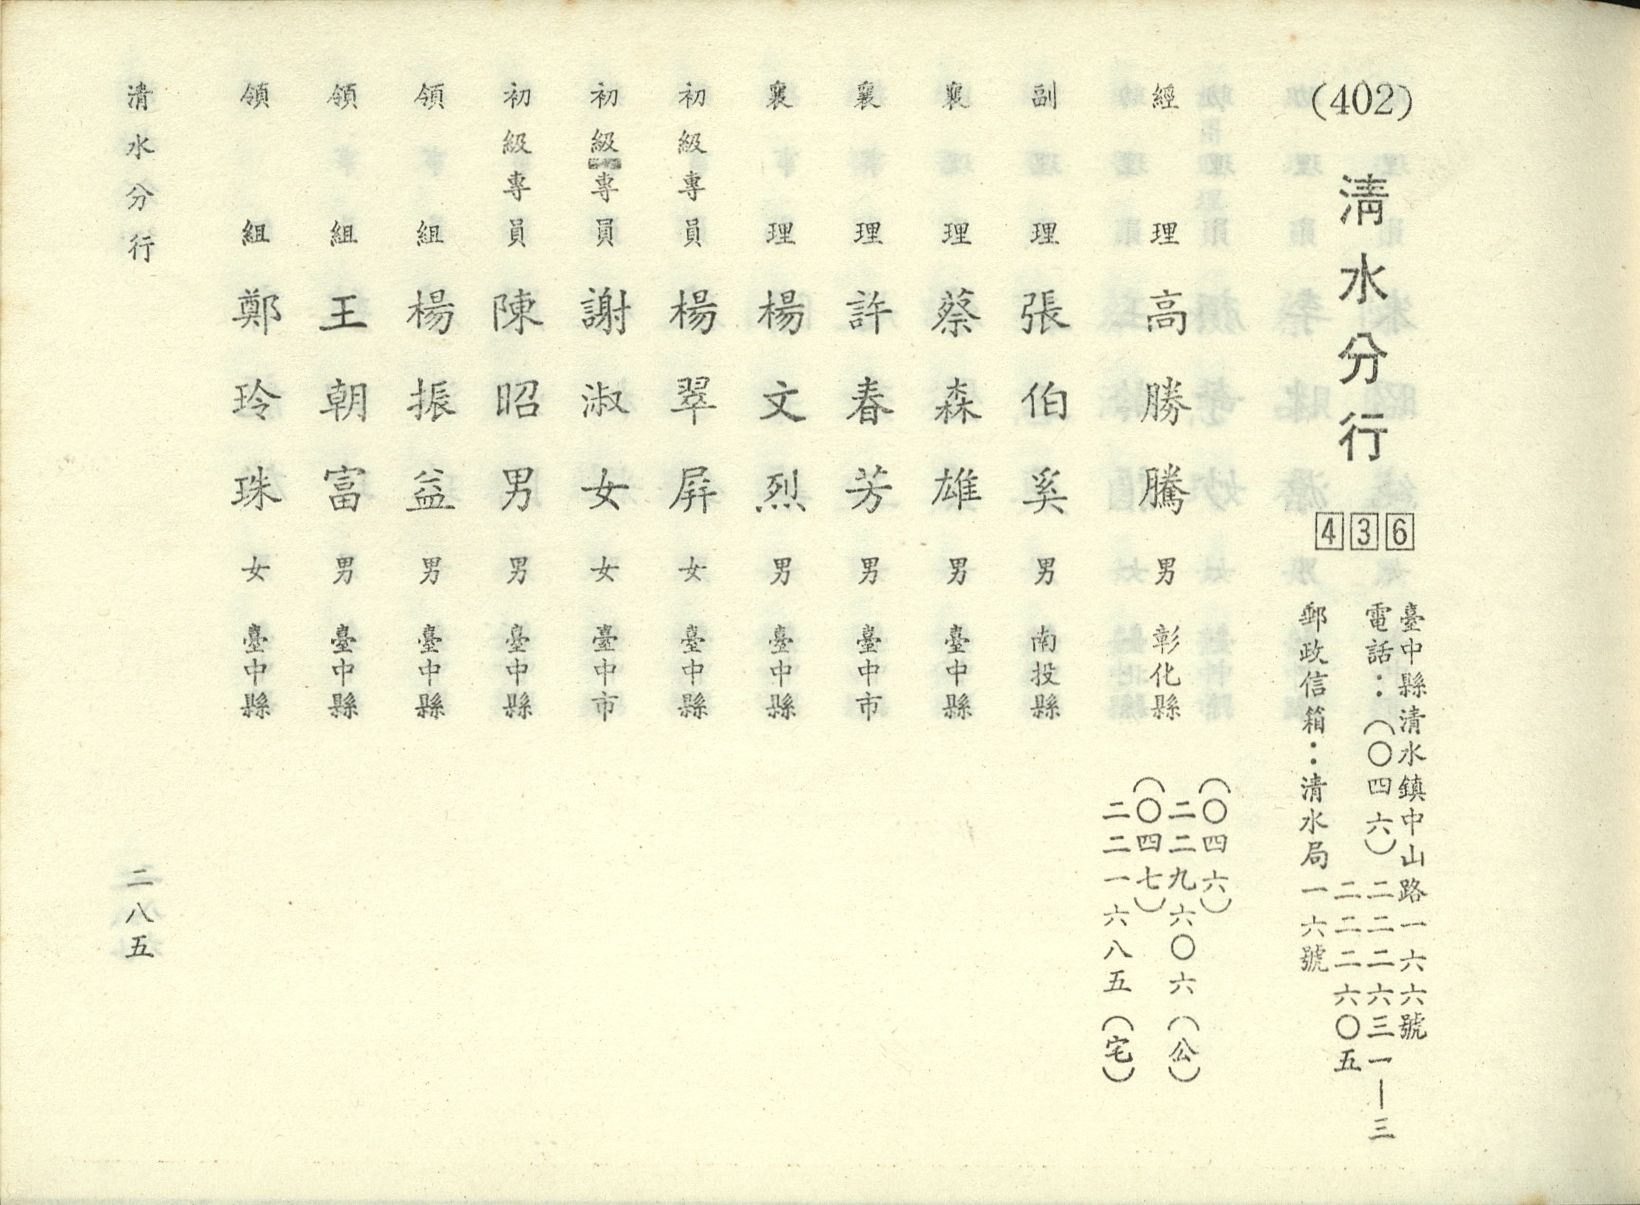 (402)
清水分行
436
臺中縣清水鎮中山路一六六號
電話：(〇四六)二二二六三一—三
二二二六〇五
郵政信箱：清水局一六號
經理 高勝騰 男 彰化縣
(〇四六)
二二九六〇六(公)
(〇四七)
二二一六八五(宅)
副理 張伯奚 男 南投縣
襄理 蔡森雄 男 臺中縣
襄理 許春芳 男 臺中市
襄理 楊文烈 男 臺中縣
初級專員 楊翠屏 女 臺中縣
初級專員 謝淑女 女 臺中市
初級專員 陳昭男 男 臺中縣
領組 楊振益 男 臺中縣
領組 王朝富 男 臺中縣
領組 鄭玲珠 女 臺中縣
清水分行
二八五